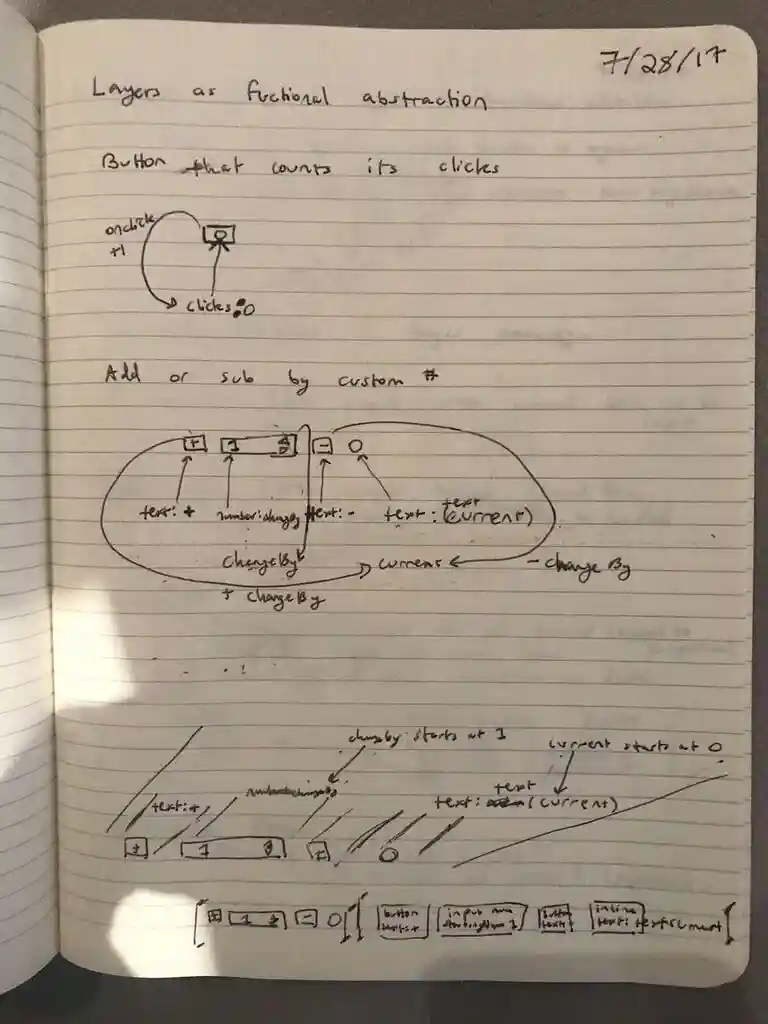 7/28/17
Layers as fuctional abstraction
Button that counts its clicks
onclick
+1
0
clicks: 0
Add or sub by custom #
+ 1 - 0
text: + number: changeBy text: - text: text (current)
changeBy current - change By
+ changeBy
changeby starts at 1
current starts at 0
text
text: + text: (current)
+ 1 0
+ 1 - 0 button text: + input num starting num 1 button text: inline text: text current